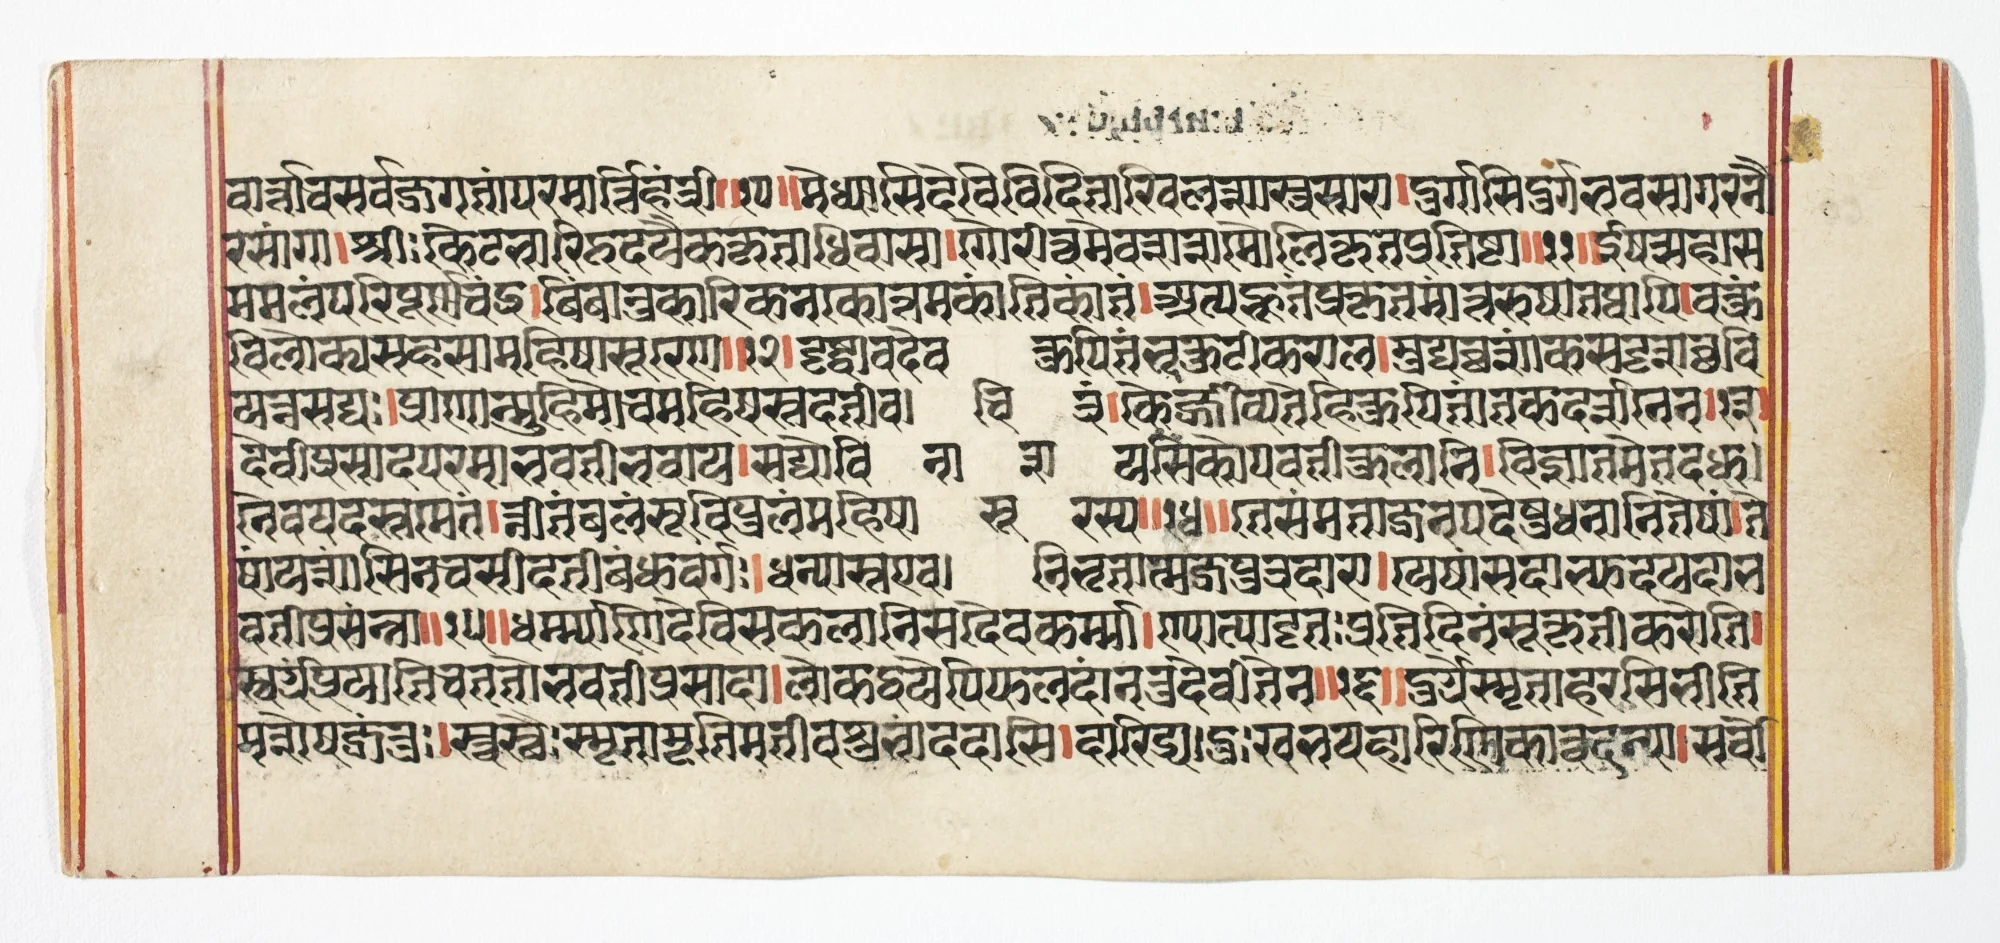 वार्त्तावसर्वजगतांपरमार्त्तिहंत्री॥१०॥मेधासिदेविविदिताखिलशास्त्रसारा।दुर्गासिदुर्गभवसागरनौ
रसंगा।श्रीःकैटभारिहृदयैककृताधिवासा।गौरीत्वमेवशशिमौलिकृतप्रतिष्ठा॥११॥ईषत्सहास
ममलंपरिपूर्णचंद्र।बिंबानुकारिकनकोत्तमकांतिकांतं।अत्यद्भुतंप्रहृतमात्तरुषातथापि।वक्त्रं
विलोक्यसहसामहिषासुरेण॥१२।दृष्ट्वावदेव कुपितंभ्रूकुटीकराल।मुद्यच्छशांकसदृशच्छवि
यन्नसद्यः।प्राणान्मुमोचमहिषस्तदतीव। चि त्रं।कैर्जीव्यतेहिकुपितांतकदर्शनेन।१३।
देवीप्रसीदपरमाभवतीभवाय।सद्योवि ना श यसिकोपवतीकुलानि।विज्ञातमेतदधु।
नैवयदस्तमेतं।न्नीतंबलंसुविपुलंमहिषा सु रस्य॥१४॥तेसंमताजनपदेषुधनानितेषां।ते
षांयशांसिनचसीदतीबंधुवर्गः।धन्यास्तएव। निभृतात्मजपुत्रदारा।येषांसदाभ्युदयदाभ
वतीप्रसंन्ना॥१५॥धर्म्म्याणिदेविसकलानिसदैवकर्म्मा।ण्यत्यादृतःप्रतिदिनंसुकृतीकरोति।
स्वर्गंप्रयातिचततोभवतीप्रसादा।ल्लोकत्रयेपिफलदांननुदेवीतेन॥१६॥दुर्गेस्मृताहरसिभीति
मशेषजंतोः।स्वस्थैःस्मृतामतिमतीवशुभांददासि।दारिद्र्य।दुःखभयहारिणिकात्वदन्या।सर्वो